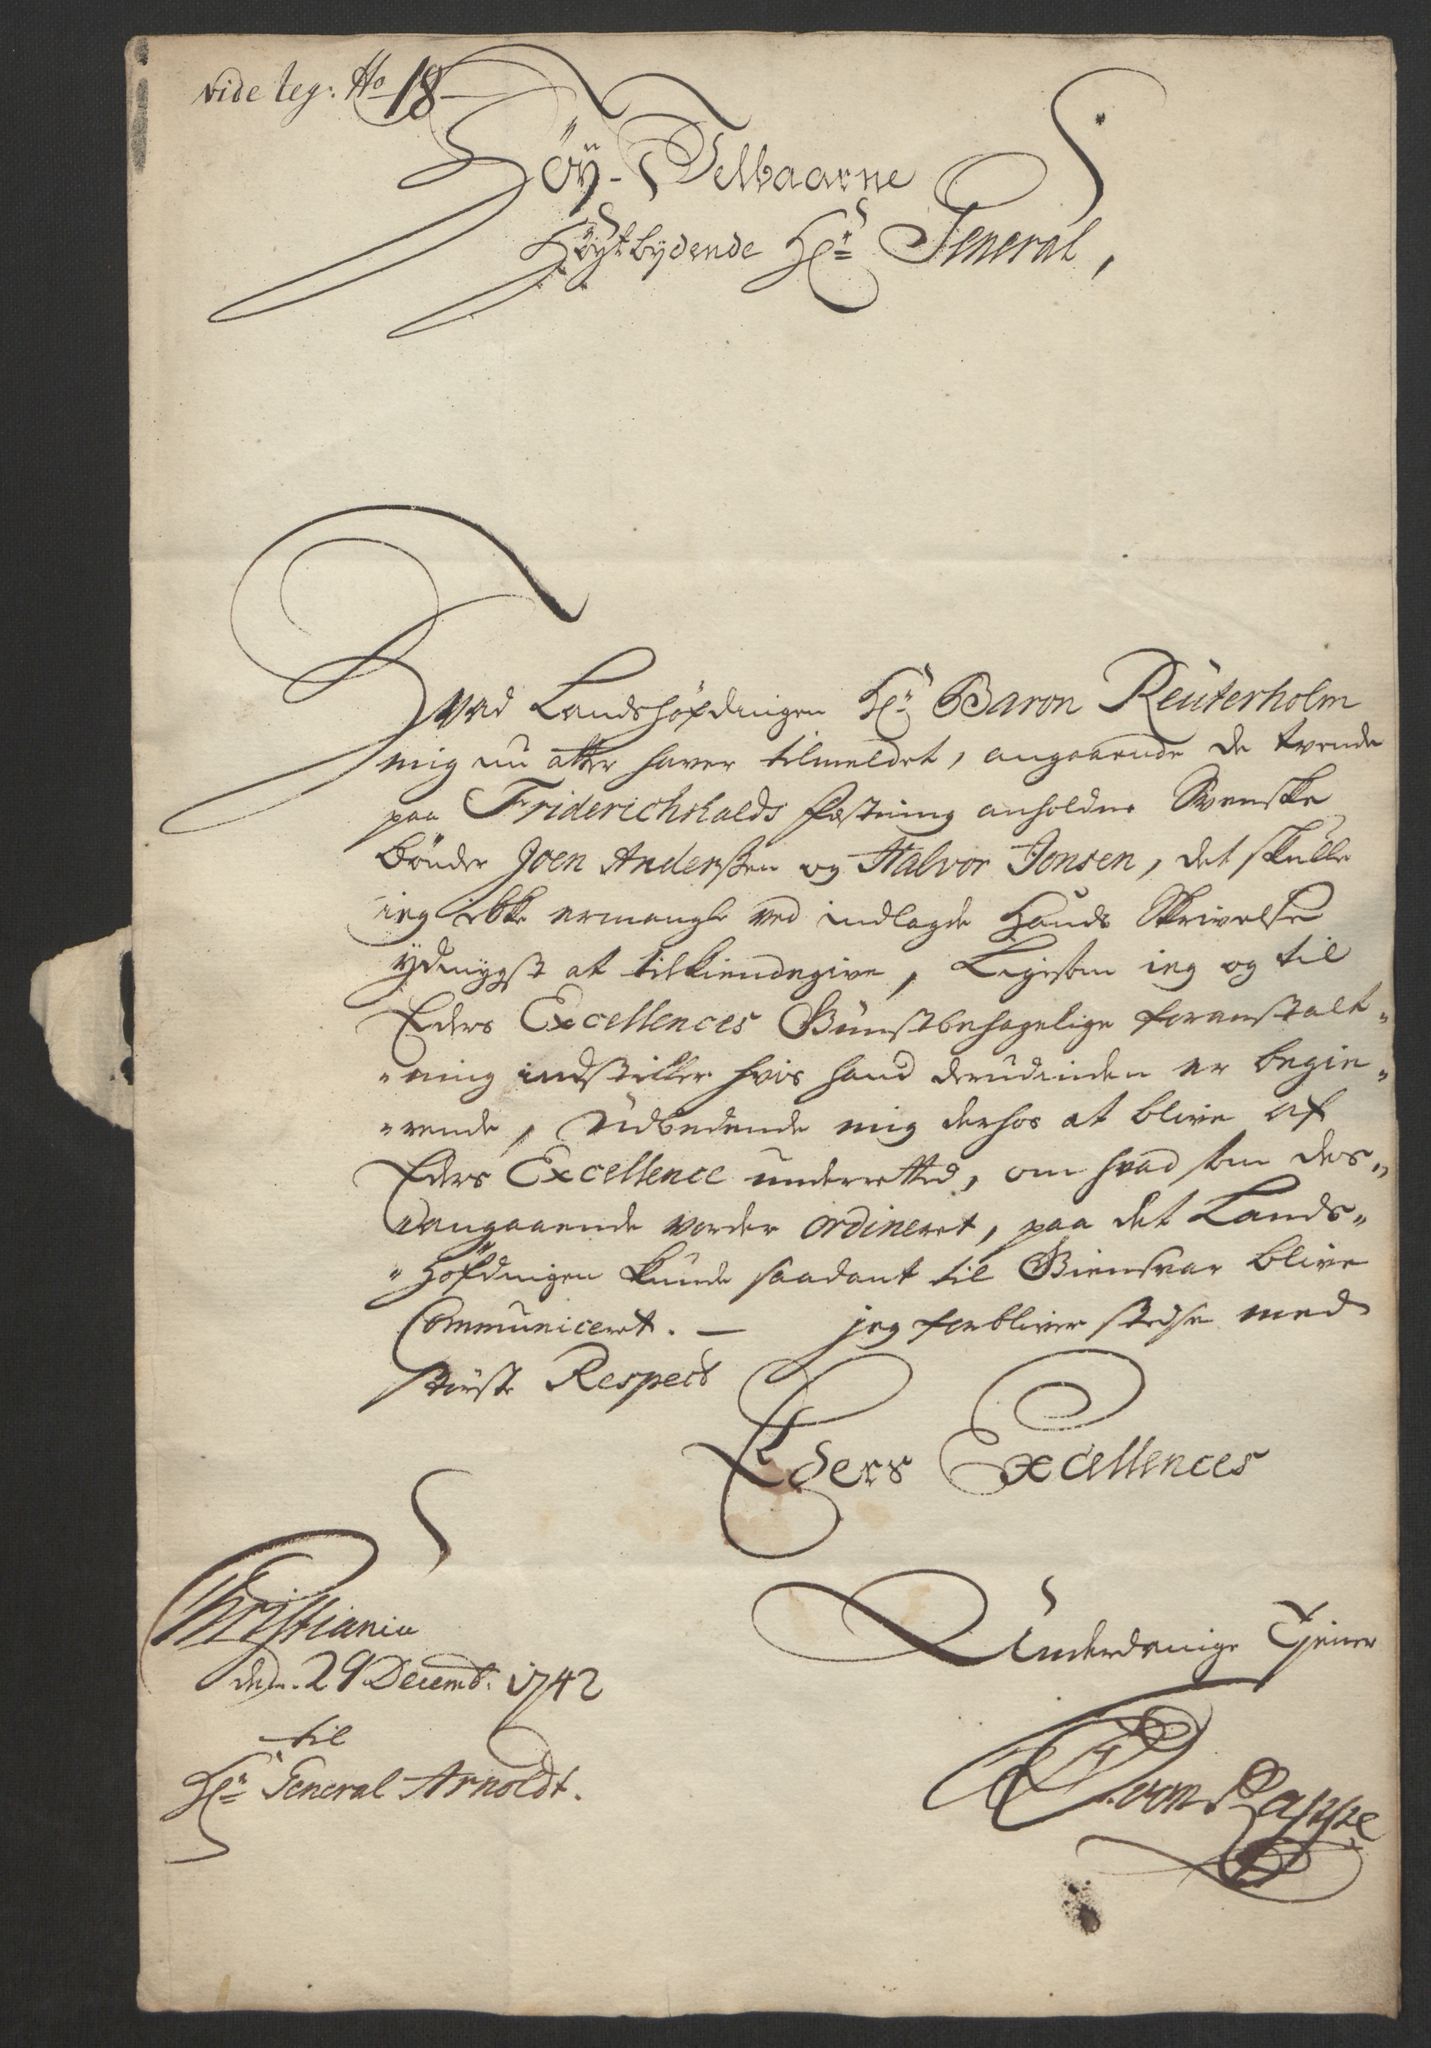 vide leg: No 18
Höy-Velbaarne
Höytbydende Hr. General,
Hvad Landshöfdingen Hr. Baron Reüterholm
mig nu atter haver tilmeldet, angaaende de tvende
paa Friderichshalds fæstning anholdne Svenske
bönder Joen Anderßen og Halvor Jonsen, det skulle
ieg ikke ermangle ved indlagde Hands Skrivelse
ydmygst at tilkiendegive, Ligesom ieg og til
Eders Excellences Gunstbehagelige foranstalt-
ning indstiller hvis hand derudinden er begie-
rende, Udbedende mig derhos at blive af
Eders Excellence underretted, om hvad som des-
angaaende vorder ordineret, paa det Lands-
höfdingen kunde saadant til Giensvar blive
Communiceret. — jeg forbliver stedse med
störste Respect
Eders Excellences
Christiania
den. 29 Decemb: 1742
til
Hr. General Arnoldt.
Underdanige Tjener
von Rappe